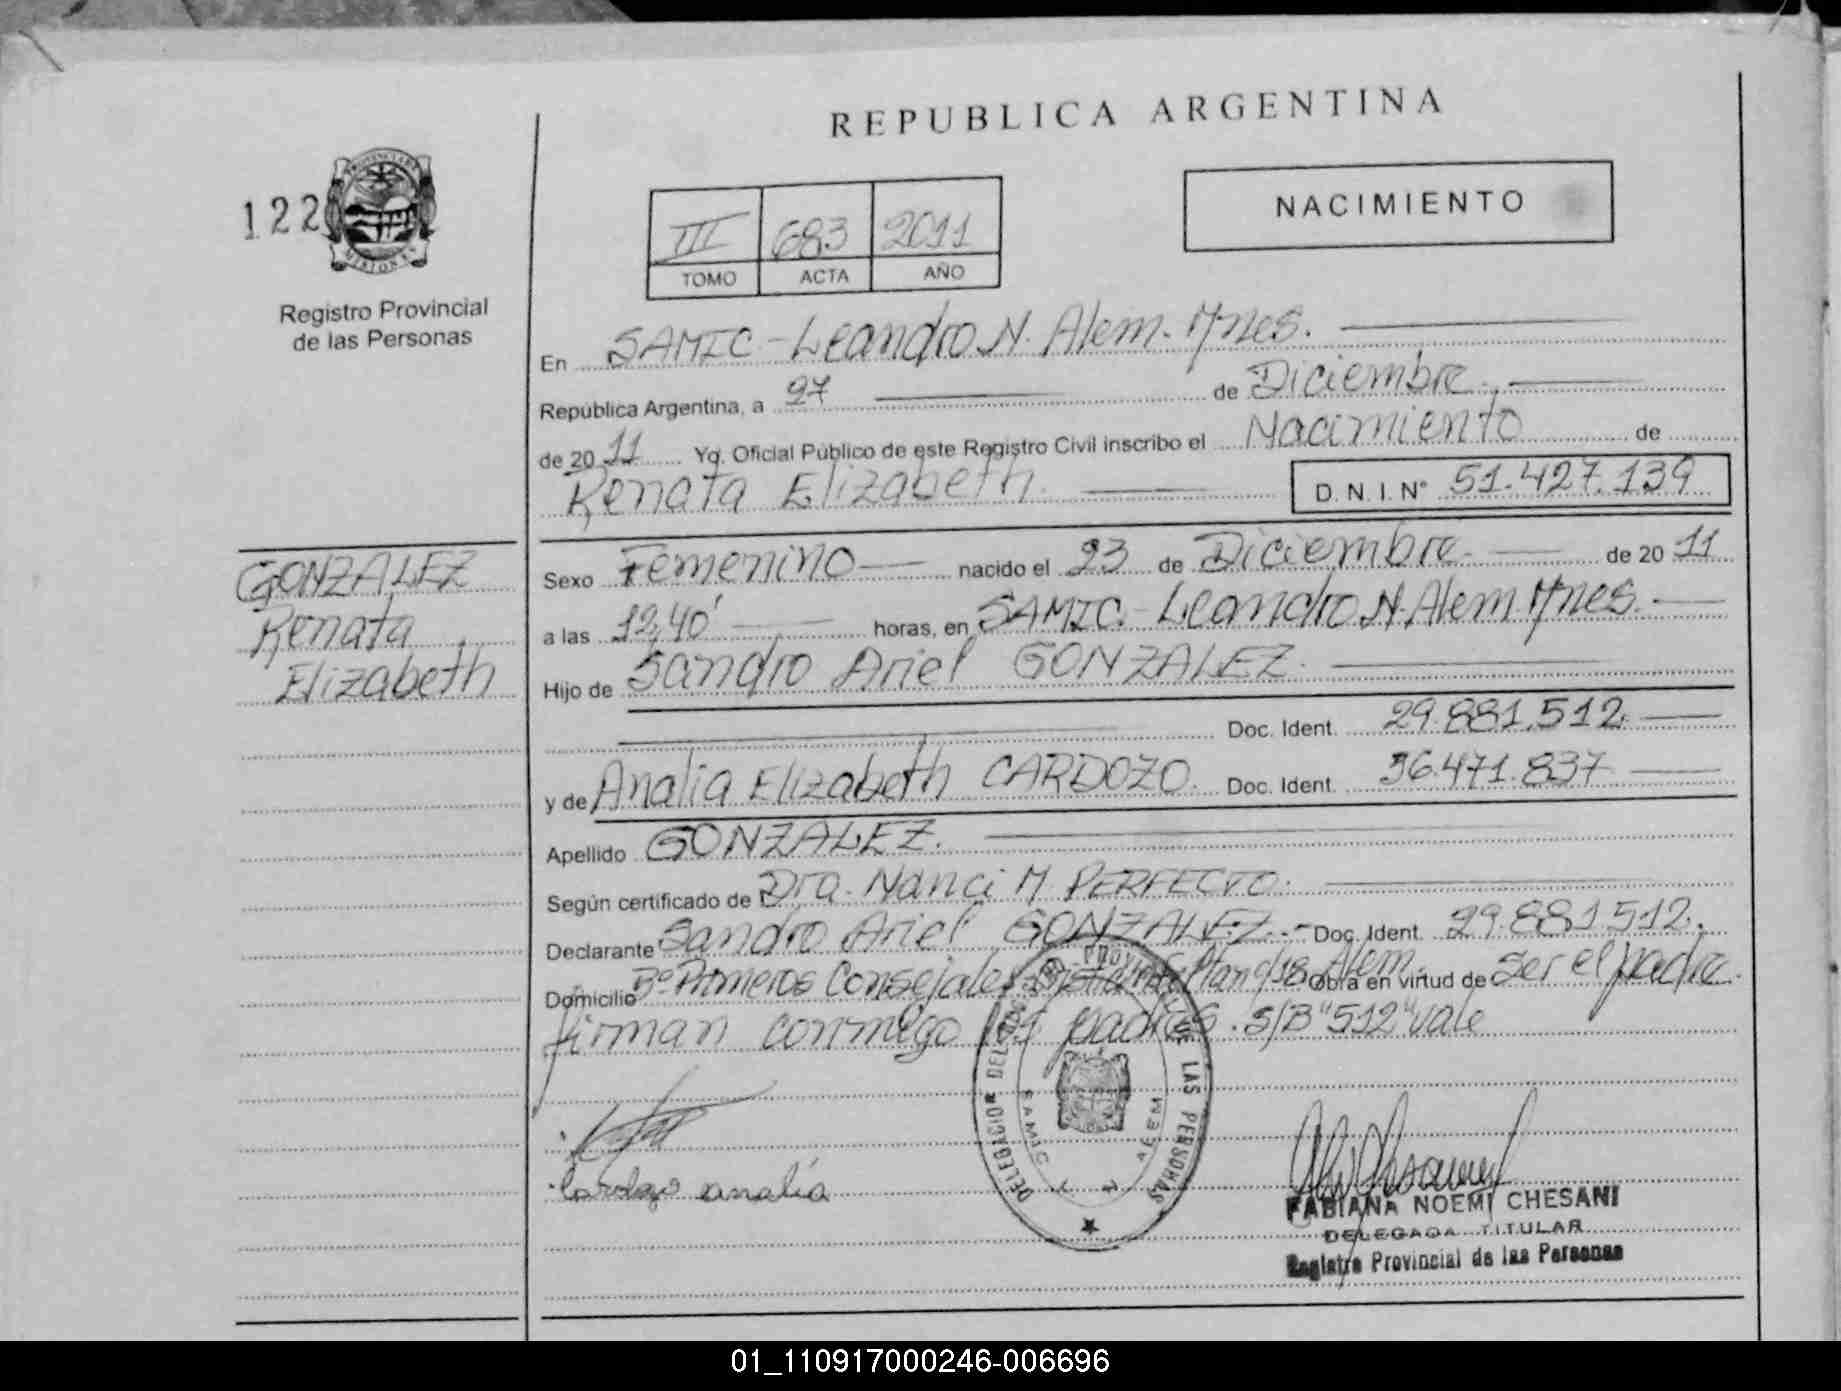 REPUBLICA ARGENTINA
122
PROVINCIA DE
MISIONES
Registro Provincial
de las Personas
III 683 2011
TOMO ACTA AÑO
NACIMIENTO
En SAMIC - Leandro N. Alem. Mnes.
República Argentina, a 27 de Diciembre
de 20 11 Yo. Oficial Público de este Registro Civil inscribo el Nacimiento de
Renata Elizabeth. D. N. I. N° 51.427.139
GONZALEZ
Renata
Elizabeth
Sexo Femenino nacido el 23 de Diciembre de 20 11
a las 12,40' horas, en SAMIC - Leandro N. Alem. Mnes.
Hijo de Sandro Ariel GONZALEZ.
Doc. Ident. 29.881.512
y de Analia Elizabeth CARDOZO. Doc. Ident. 36.471.837
Apellido GONZALEZ.
Según certificado de Dra. Nanci M. PERFECTO.
Declarante Sandro Ariel GONZALEZ.- Doc. Ident. 29.881512.
Domicilio B° Primeros Consejales Alem Obra en virtud de ser el padre.
firman conmigo los padres. S/B "512" vale
Cardozo analía
SAMIC
ALEM
DE LAS PERSONAS
FABIANA NOEMI CHESANI
DELEGADA TITULAR
Registro Provincial de las Personas
01_110917000246-006696